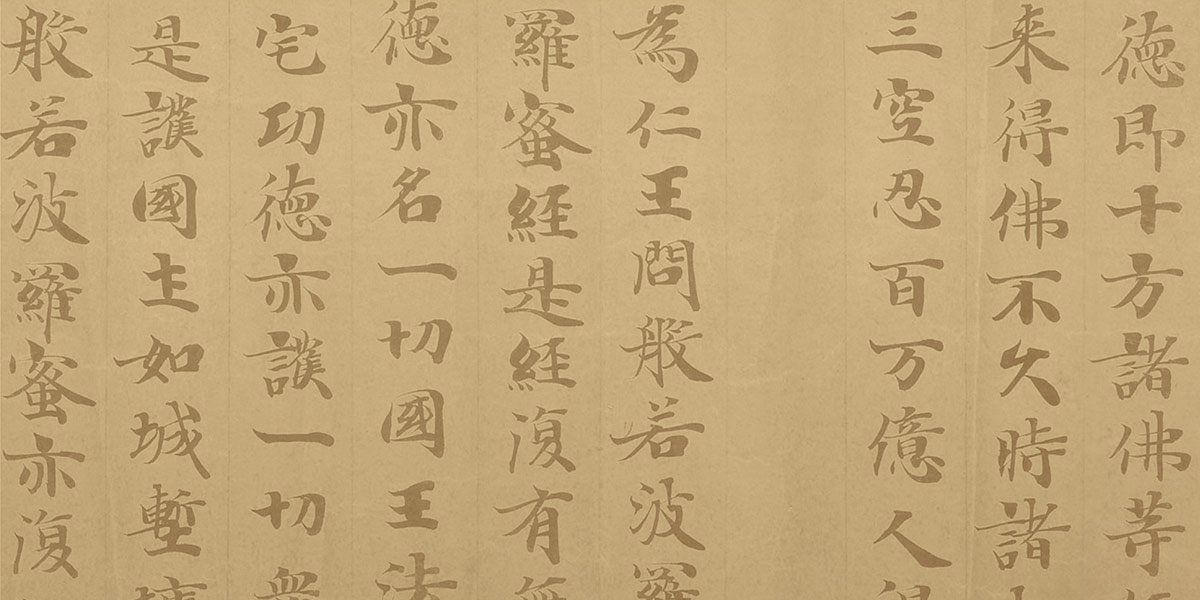 徳即十方諸佛等
来得佛不久時諸
三空忍百万億人得
為仁王問般若波羅
羅蜜経是経復有無
徳亦名一切國王法
宅功徳亦護一切
是護國土如城塹
般若波羅蜜亦復